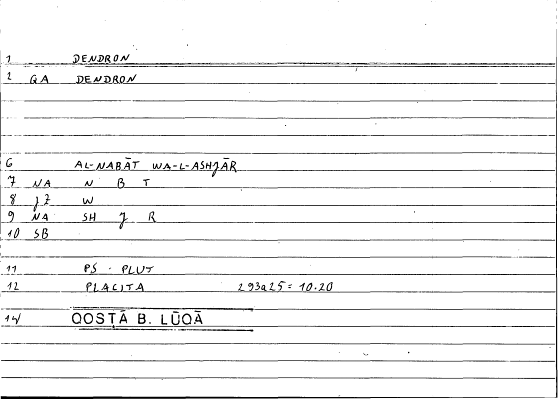 1 DENDRON
2 GA DENDRON
6 AL-NABĀT WA-L-ASHJĀR
7 NA N B T
8 JZ W
9 NA SH J R
10 SB
11 PS - PLUT
12 PLACITA 293a25 = 10.20
14 QOSṬĀ B. LŪQĀ